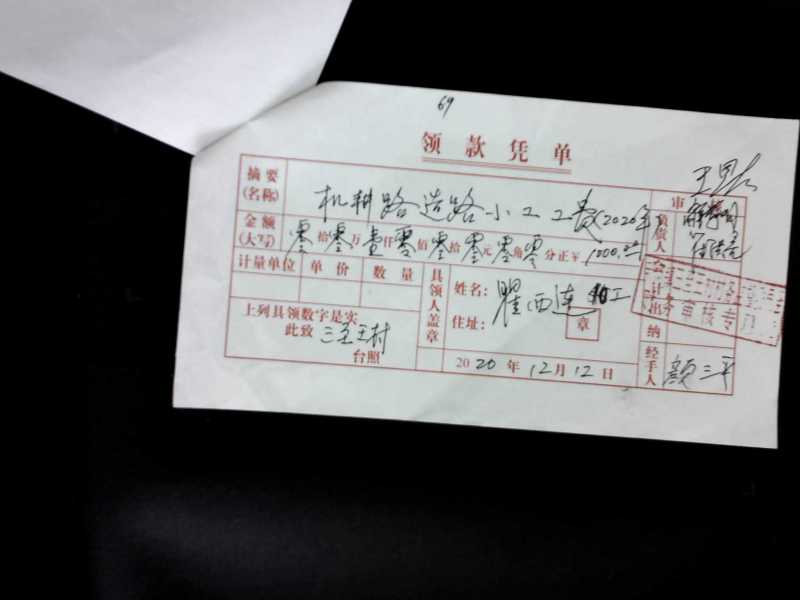 69
领款凭单
摘要(名称) 机耕路造路小工工资(2020年) 审
金额(大写) 零拾零万壹仟零佰零拾零元零角零分正¥1000.00 负责人
计量单位 单价 数量 具领人盖章 姓名: 瞿西连 10工 会计
上列具领数字是实 住址: 章 出纳
此致 三王村
台照 2020年12月12日 经手人 颜三平
审核专